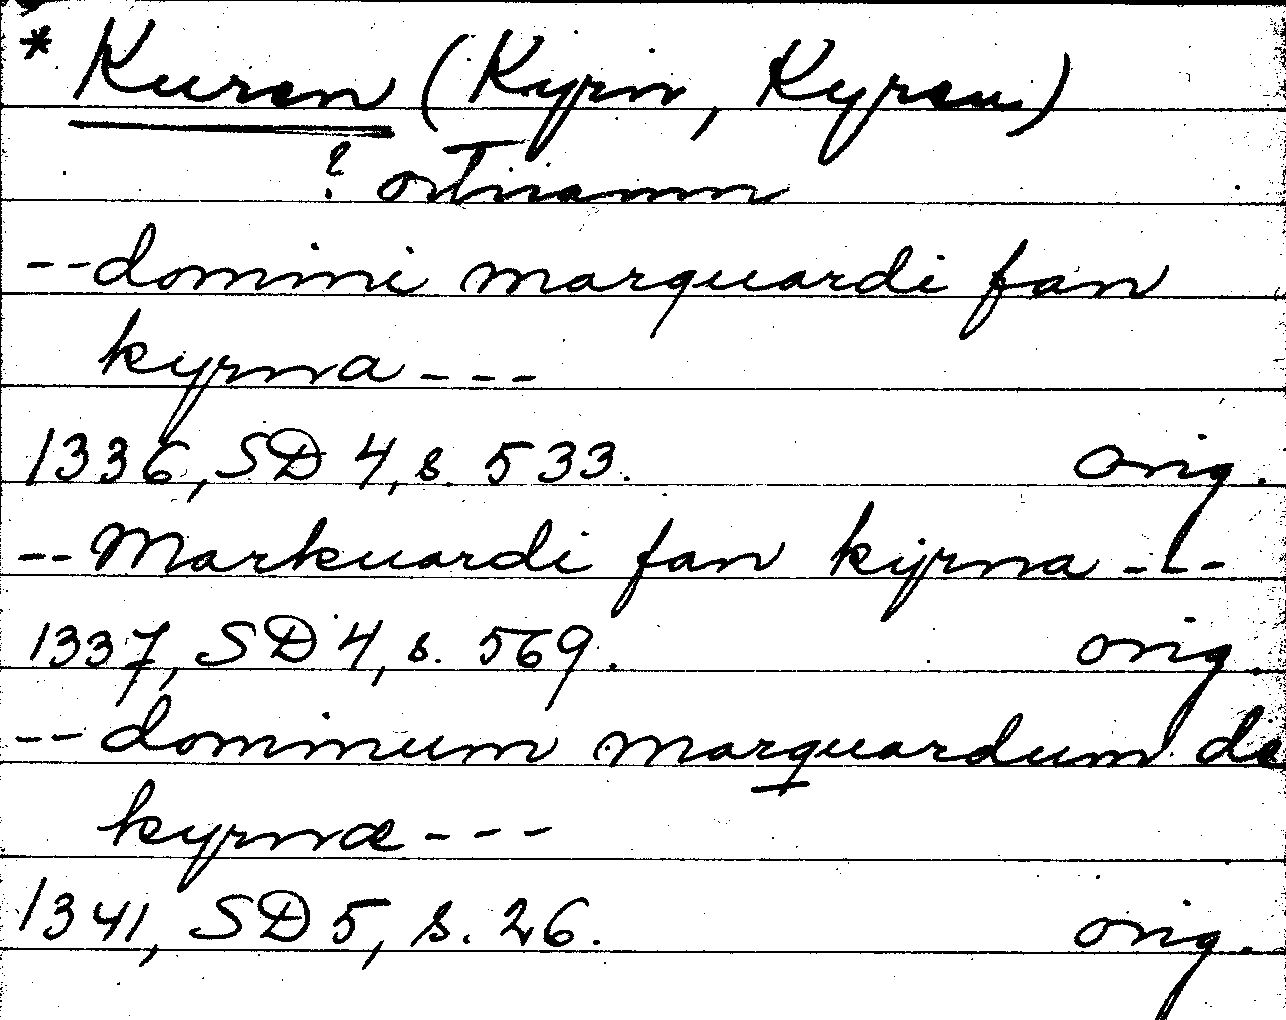 * Kuren (Kyrn, Kyren)
? ortnamn
--domini marquardi fan
kyrna ---
1336, SD 4, s. 533. orig.
--Markuardi fan kyrna ---
1337, SD 4, s. 569. orig.
--dominum marquardum de
kyrnæ ---
1341, SD 5, s. 26. orig.